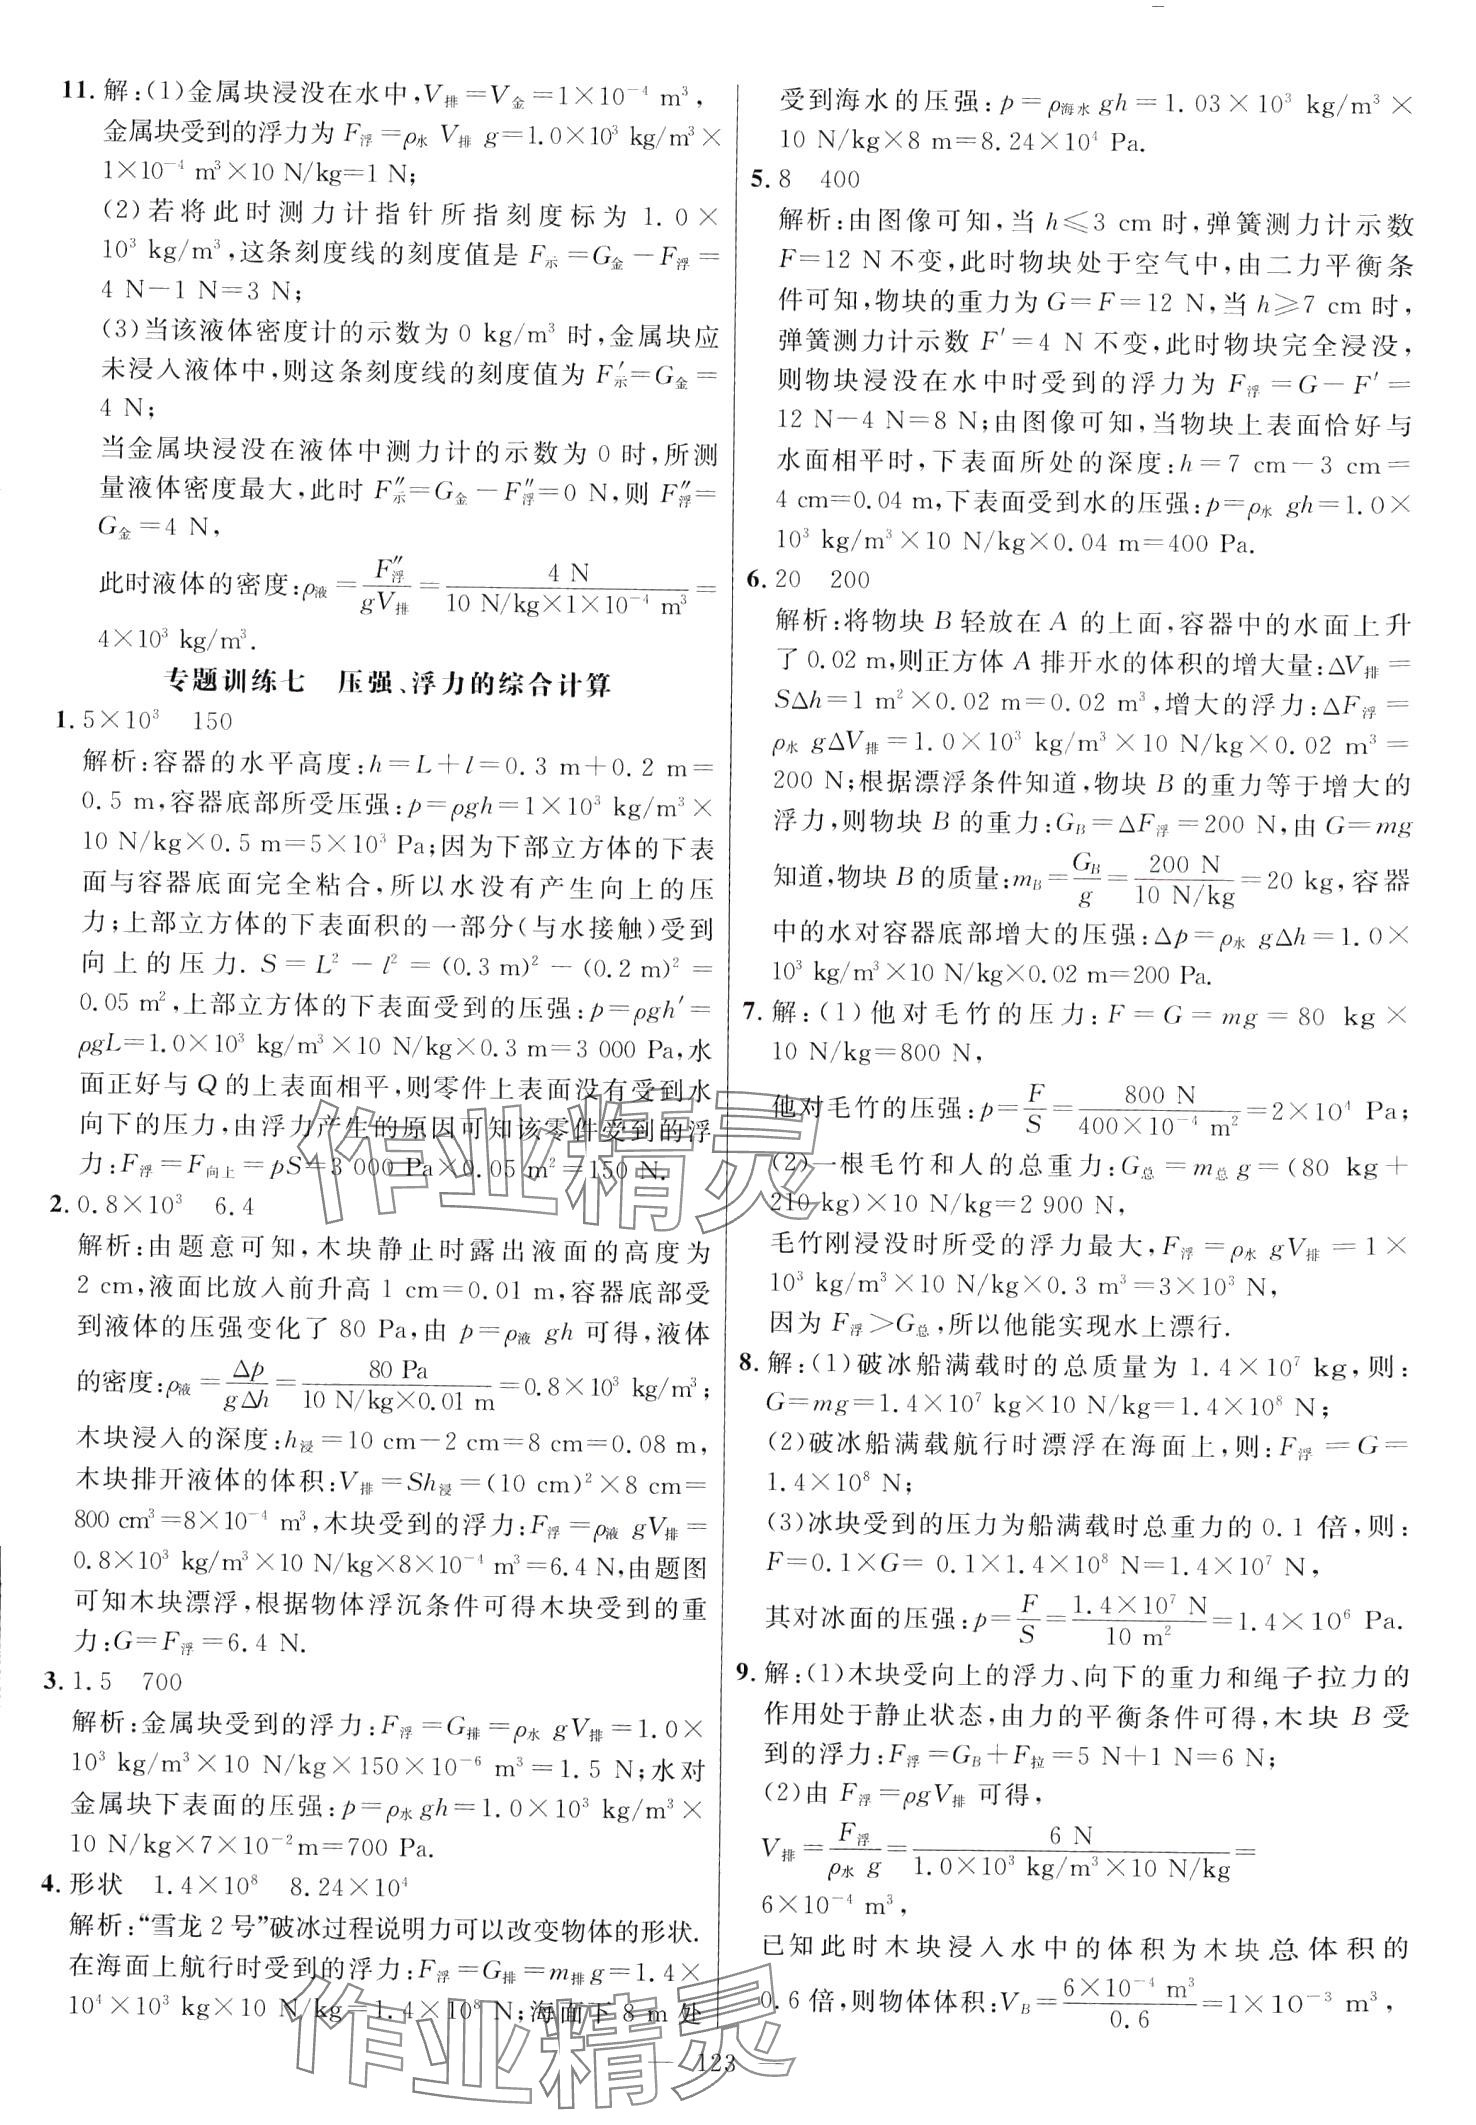 11. 解:(1)金属块浸没在水中,V排=V金=1×10⁻⁴ m³,
金属块受到的浮力为 F浮=ρ水 V排 g=1.0×10³ kg/m³×
1×10⁻⁴ m³×10 N/kg=1 N;
(2)若将此时测力计指针所指刻度标为 1.0×
10³ kg/m³,这条刻度线的刻度值是 F示=G金-F浮=
4 N-1 N=3 N;
(3)当该液体密度计的示数为 0 kg/m³ 时,金属块应
未浸入液体中,则这条刻度线的刻度值为 F′示=G金=
4 N;
当金属块浸没在液体中测力计的示数为 0 时,所测
量液体密度最大,此时 F″示=G金-F″浮=0 N,则 F″浮=
G金=4 N,
此时液体的密度:ρ液=F″浮/gV排=4 N/(10 N/kg×1×10⁻⁴ m³)=
4×10³ kg/m³.
专题训练七 压强、浮力的综合计算
1. 5×10³ 150
解析:容器的水平高度:h=L+l=0.3 m+0.2 m=
0.5 m,容器底部所受压强:p=ρgh=1×10³ kg/m³×
10 N/kg×0.5 m=5×10³ Pa;因为下部立方体的下表
面与容器底面完全粘合,所以水没有产生向上的压
力;上部立方体的下表面积的一部分(与水接触)受到
向上的压力. S=L²-l²=(0.3 m)²-(0.2 m)²=
0.05 m²,上部立方体的下表面受到的压强:p=ρgh′=
ρgL=1.0×10³ kg/m³×10 N/kg×0.3 m=3 000 Pa,水
面正好与 Q 的上表面相平,则零件上表面没有受到水
向下的压力,由浮力产生的原因可知该零件受到的浮
力:F浮=F向上=pS=3 000 Pa×0.05 m²=150 N.
2. 0.8×10³ 6.4
解析:由题意可知,木块静止时露出液面的高度为
2 cm,液面比放入前升高 1 cm=0.01 m,容器底部受
到液体的压强变化了 80 Pa,由 p=ρ液 gh 可得,液体
的密度:ρ液=Δp/gΔh=80 Pa/(10 N/kg×0.01 m)=0.8×10³ kg/m³;
木块浸入的深度:h浸=10 cm-2 cm=8 cm=0.08 m,
木块排开液体的体积:V排=Sh浸=(10 cm)²×8 cm=
800 cm³=8×10⁻⁴ m³,木块受到的浮力:F浮=ρ液 gV排=
0.8×10³ kg/m³×10 N/kg×8×10⁻⁴ m³=6.4 N,由题图
可知木块漂浮,根据物体浮沉条件可得木块受到的重
力:G=F浮=6.4 N.
3. 1.5 700
解析:金属块受到的浮力:F浮=G排=ρ水 gV排=1.0×
10³ kg/m³×10 N/kg×150×10⁻⁶ m³=1.5 N;水对
金属块下表面的压强:p=ρ水 gh=1.0×10³ kg/m³×
10 N/kg×7×10⁻² m=700 Pa.
4. 形状 1.4×10⁸ 8.24×10⁴
解析:“雪龙 2 号”破冰过程说明力可以改变物体的形状.
在海面上航行时受到的浮力:F浮=G排=m排g=1.4×
10⁴×10³ kg×10 N/kg=1.4×10⁸ N;海面下 8 m 处
受到海水的压强:p=ρ海水 gh=1.03×10³ kg/m³×
10 N/kg×8 m=8.24×10⁴ Pa.
5. 8 400
解析:由图像可知,当 h≤3 cm 时,弹簧测力计示数
F=12 N 不变,此时物块处于空气中,由二力平衡条
件可知,物块的重力为 G=F=12 N,当 h≥7 cm 时,
弹簧测力计示数 F′=4 N 不变,此时物块完全浸没,
则物块浸没在水中时受到的浮力为 F浮=G-F′=
12 N-4 N=8 N;由图像可知,当物块上表面恰好与
水面相平时,下表面所处的深度:h=7 cm-3 cm=
4 cm=0.04 m,下表面受到水的压强:p=ρ水 gh=1.0×
10³ kg/m³×10 N/kg×0.04 m=400 Pa.
6. 20 200
解析:将物块 B 轻放在 A 的上面,容器中的水面上升
了 0.02 m,则正方体 A 排开水的体积的增大量:ΔV排=
SΔh=1 m²×0.02 m=0.02 m³,增大的浮力:ΔF浮=
ρ水 gΔV排=1.0×10³ kg/m³×10 N/kg×0.02 m³=
200 N;根据漂浮条件知道,物块 B 的重力等于增大的
浮力,则物块 B 的重力:G_B=ΔF浮=200 N,由 G=mg
知道,物块 B 的质量:m_B=G_B/g=200 N/(10 N/kg)=20 kg,容器
中的水对容器底部增大的压强:Δp=ρ水 gΔh=1.0×
10³ kg/m³×10 N/kg×0.02 m=200 Pa.
7. 解:(1)他对毛竹的压力:F=G=mg=80 kg×
10 N/kg=800 N,
他对毛竹的压强:p=F/S=800 N/(400×10⁻⁴ m²)=2×10⁴ Pa;
(2)一根毛竹和人的总重力:G总=m总 g=(80 kg+
210 kg)×10 N/kg=2 900 N,
毛竹刚浸没时所受的浮力最大,F浮=ρ水 gV排=1×
10³ kg/m³×10 N/kg×0.3 m³=3×10³ N,
因为 F浮>G总,所以他能实现水上漂行.
8. 解:(1)破冰船满载时的总质量为 1.4×10⁷ kg,则:
G=mg=1.4×10⁷ kg×10 N/kg=1.4×10⁸ N;
(2)破冰船满载航行时漂浮在海面上,则:F浮=G=
1.4×10⁸ N;
(3)冰块受到的压力为船满载时总重力的 0.1 倍,则:
F=0.1×G=0.1×1.4×10⁸ N=1.4×10⁷ N,
其对冰面的压强:p=F/S=1.4×10⁷ N/10 m²=1.4×10⁶ Pa.
9. 解:(1)木块受向上的浮力、向下的重力和绳子拉力的
作用处于静止状态,由力的平衡条件可得,木块 B 受
到的浮力:F浮=G_B+F拉=5 N+1 N=6 N;
(2)由 F浮=ρgV排 可得,
V排=F浮/ρ水 g=6 N/(1.0×10³ kg/m³×10 N/kg)=
6×10⁻⁴ m³,
已知此时木块浸入水中的体积为木块总体积的
0.6 倍,则物体体积:V_B=6×10⁻⁴ m³/0.6=1×10⁻³ m³,
123
作业精灵
作业精灵